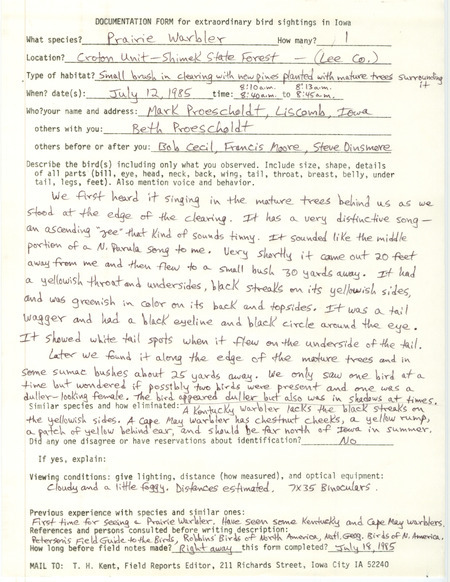 DOCUMENTATION FORM for extraordinary bird sightings in Iowa
What species? Prairie Warbler How many? 1
Location? Croton Unit - Shimek State Forest - (Lee Co.)
Type of habitat? Small brush in clearing with new pines planted with mature trees surrounding it
8:10 a.m. 8:13 a.m.
When? date(s): July 12, 1985 time: 8:40 a.m. to 8:45 a.m.
Who? your name and address: Mark Proescholdt, Liscomb, Iowa
others with you: Beth Proescholdt
others before or after you: Bob Cecil, Francis Moore, Steve Dinsmore
Describe the bird(s) including only what you observed. Include size, shape, details
of all parts (bill, eye, head, neck, back, wing, tail, throat, breast, belly, under
tail, legs, feet). Also mention voice and behavior.
We first heard it singing in the mature trees behind us as we
stood at the edge of the clearing. It has a very distinctive song -
an ascending "zee" that kind of sounds tinny. It sounded like the middle
portion of a N. Parula song to me. Very shortly it came out 20 feet
away from me and then flew to a small bush 30 yards away. It had
a yellowish throat and undersides, black streaks on its yellowish sides,
and was greenish in color on its back and topsides. It was a tail
wagger and had a black eyeline and black circle around the eye.
It showed white tail spots when it flew on the underside of the tail.
Later we found it along the edge of the mature trees and in
some sumac bushes about 25 yards away. We only saw one bird at a
time but wondered if possibly two birds were present and one was a
duller-looking female. The bird appeared duller but also was in shadows at times.
Similar species and how eliminated: A Kentucky Warbler lacks the black streaks on
the yellowish sides. A Cape May warbler has chestnut cheeks, a yellow rump,
a patch of yellow behind ear, and should be far north of Iowa in summer.
Did any one disagree or have reservations about identification? No
If yes, explain:
Viewing conditions: give lighting, distance (how measured), and optical equipment:
Cloudy and a little foggy. Distances estimated. 7x35 Binoculars.
Previous experience with species and similar ones:
First time for seeing a Prairie Warbler. Have seen some Kentucky and Cape May warblers.
References and persons consulted before writing description:
Peterson's Field Guide to the Birds, Robbins' Birds of North America, Natl. Geog. Birds of N. America.
How long before field notes made? Right away this form completed? July 19, 1985
MAIL TO: T. H. Kent, Field Reports Editor, 211 Richards Street, Iowa City IA 52240